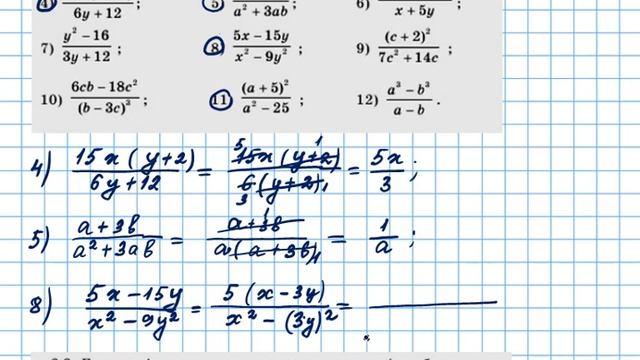 4) 6y + 12 ; 5) a² + 3ab ; 6) x + 5y ;
7) (y² − 16)/(3y + 12) ; 8) (5x − 15y)/(x² − 9y²) ; 9) (c + 2)²/(7c² + 14c) ;
10) (6cb − 18c²)/(b − 3c)³ ; 11) (a + 5)²/(a² − 25) ; 12) (a³ − b³)/(a − b) .
4) 15x(y+2)/(6y+12) = 5 15x(y+2) 1/(6 3 (y+2) 1) = 5x/3 ;
5) (a+3b)/(a²+3ab) = (a+3b) 1/(a(a+3b) 1) = 1/a ;
8) (5x−15y)/(x²−9y²) = 5(x−3y)/(x²−(3y)²) =